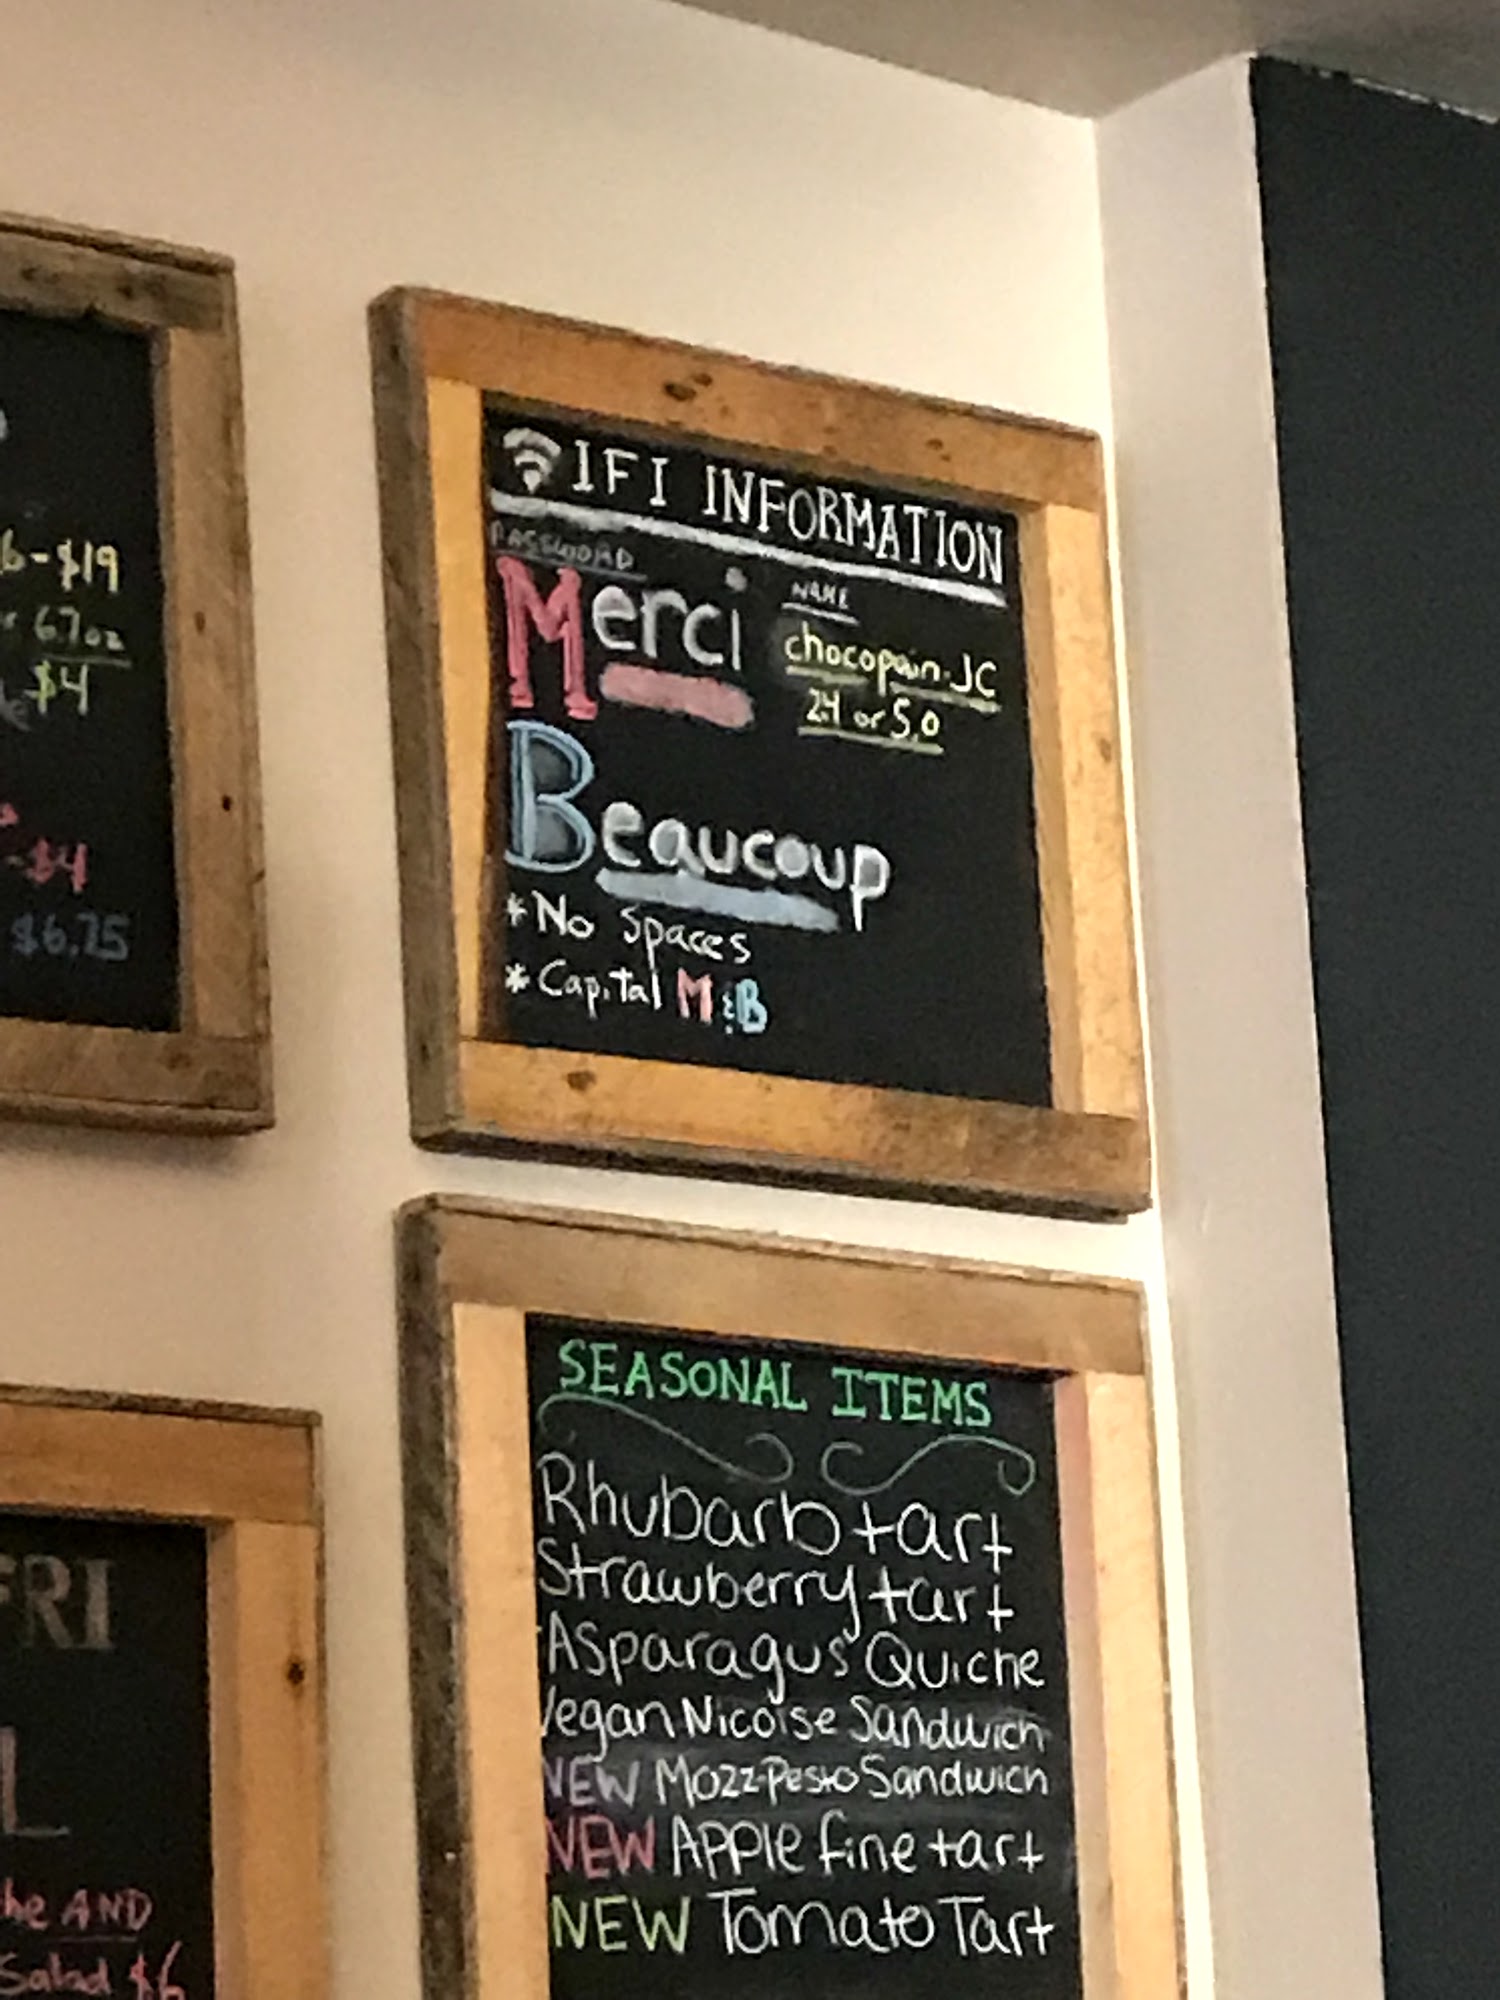 6-$19
6.7oz
$4
-$4
$6.75
IFI INFORMATION
PASSWORD
Merci
NAME
chocopain-JC
2.4 or 5.0
Beaucoup
*No Spaces
*Capital M & B
SEASONAL ITEMS
Rhubarb tart
Strawberry tart
Asparagus Quiche
Vegan Nicoise Sandwich
NEW Mozz-Pesto Sandwich
NEW Apple fine tart
NEW Tomato Tart
FRI
L
he AND
Salad $6